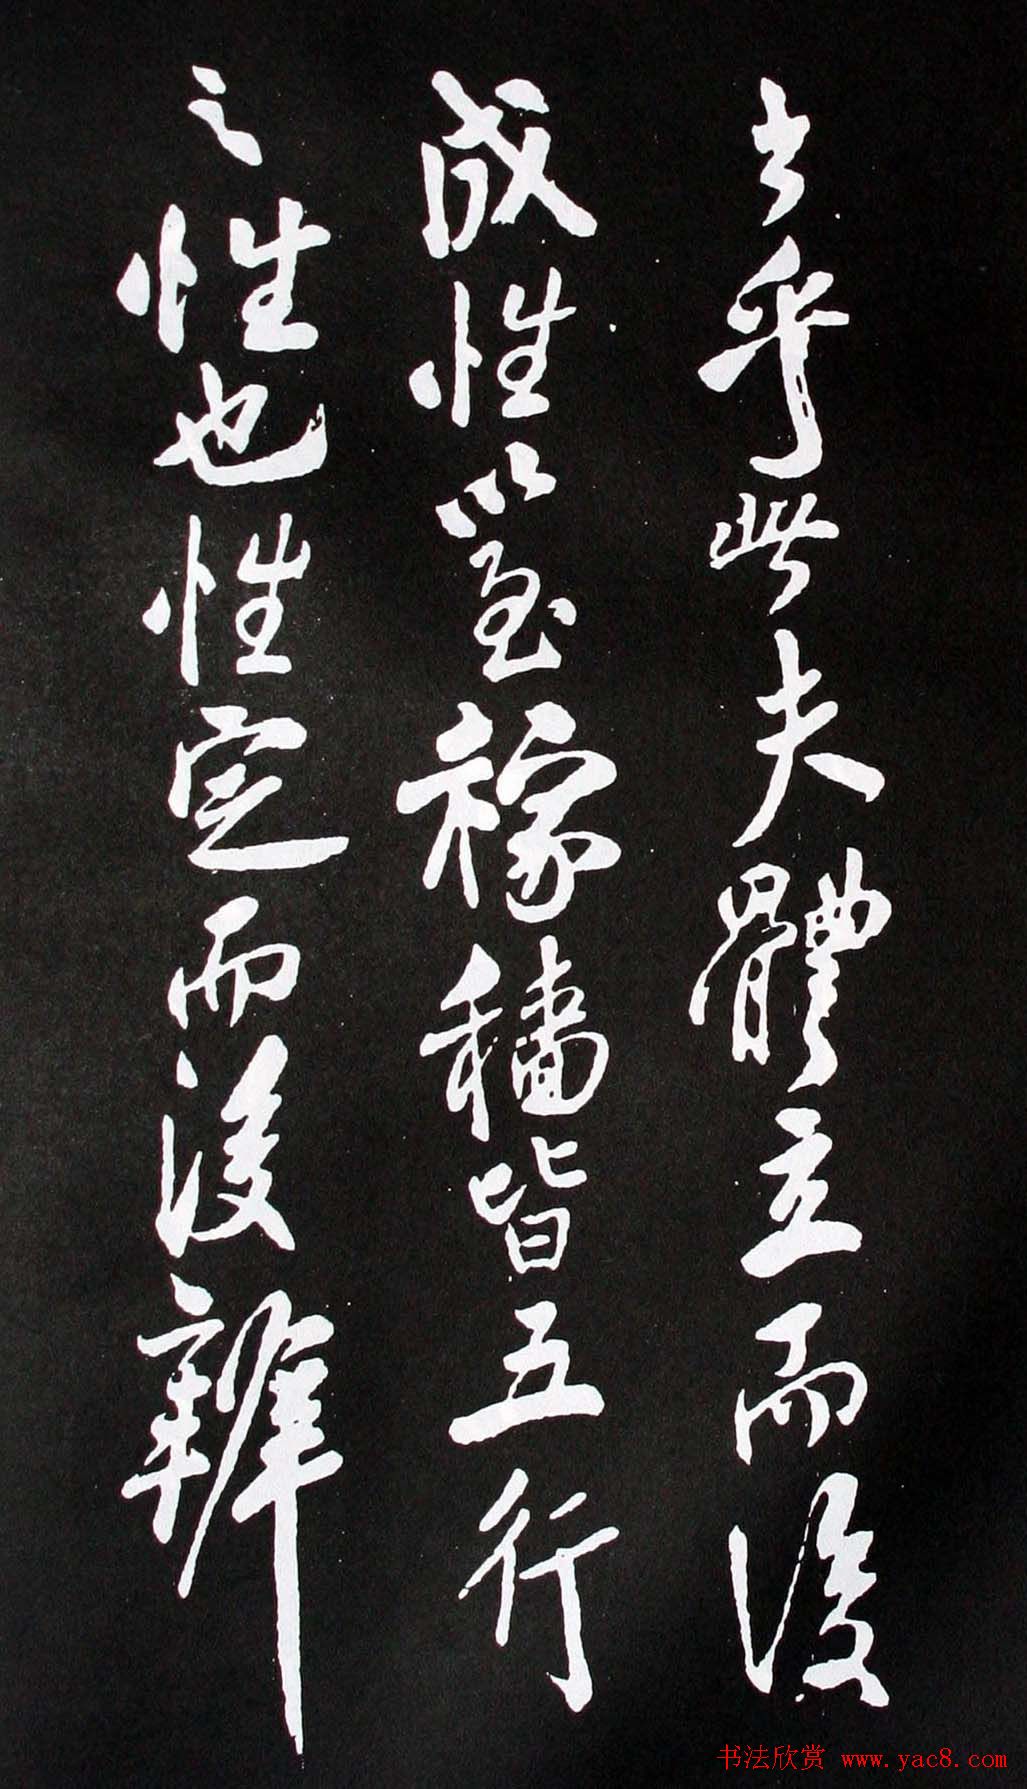 乎此夫體立而後
成性以至稼穡皆五行
之性也性定而後辨
书法欣赏 www.yac8.com